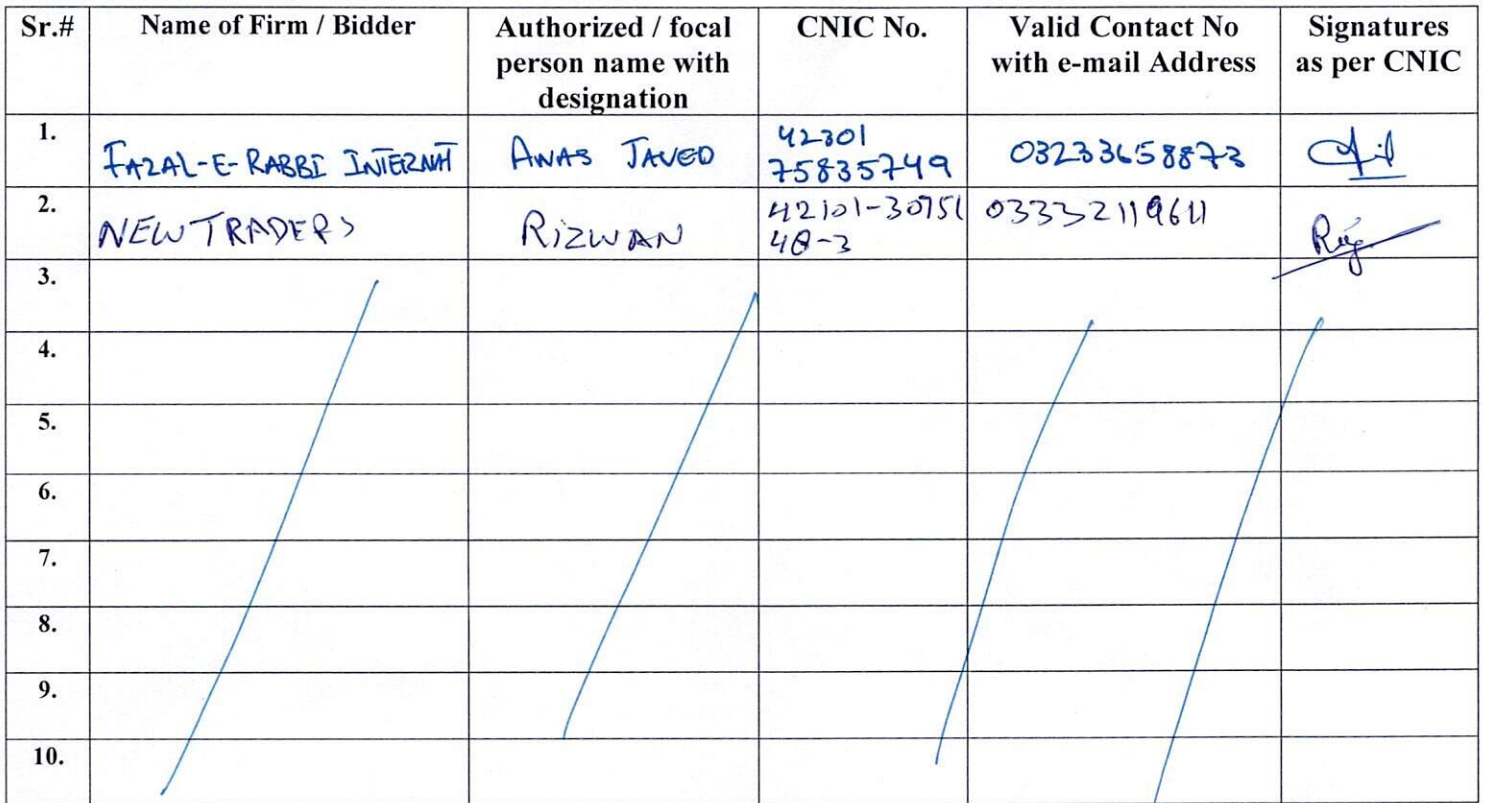 Sr.# Name of Firm / Bidder Authorized / focal person name with designation CNIC No. Valid Contact No with e-mail Address Signatures as per CNIC
1. FAZAL-E-RABBI INTERNAT ANAS JAVED 42301 75835749 03233658873
2. NEW TRADERS RIZWAN 42101-30751 48-3 03332119611
3.
4.
5.
6.
7.
8.
9.
10.